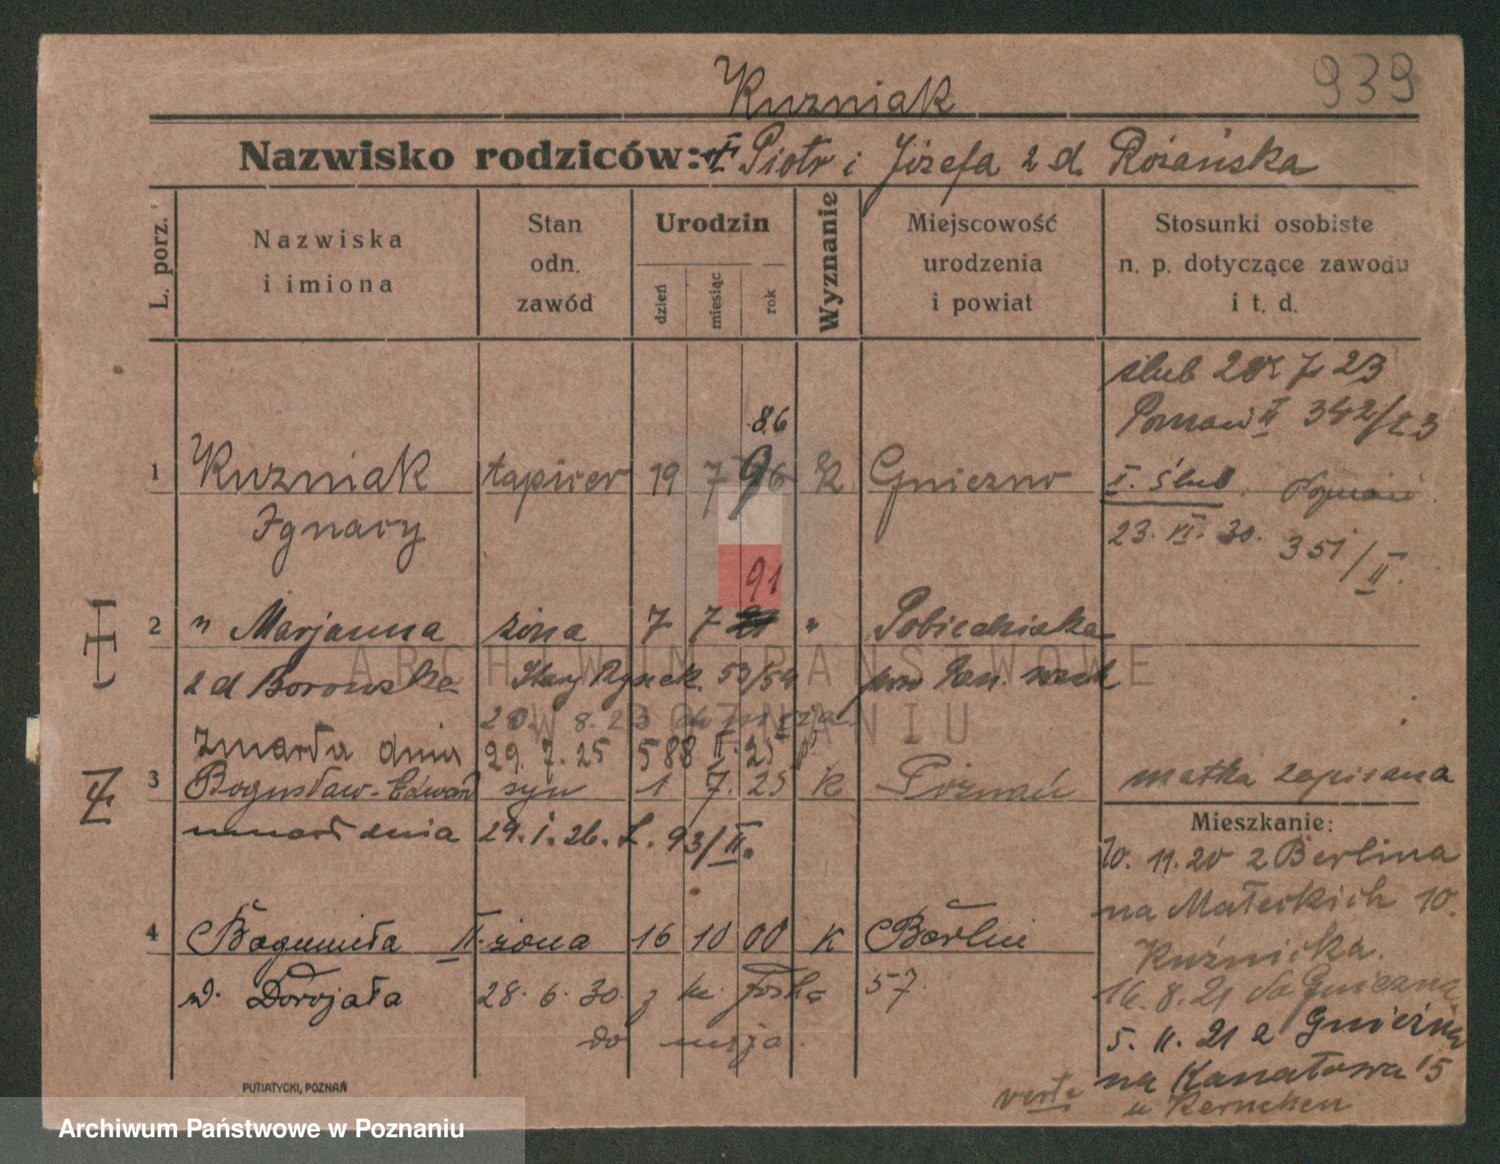 939
Kuzniak
Nazwisko rodziców: Piotr i Józefa z d. Rożańska
L. porz.
Nazwiska i imiona
Stan odn. zawód
Urodzin
dzień
miesiąc
rok
Wyznanie
Miejscowość urodzenia i powiat
Stosunki osobiste n. p. dotyczące zawodu i t. d.
ślub 28 7 23
Poznań II 342/23
86
1 Kuzniak tapicer 19 7 96 k Gniezno
Ignacy
II. Ślub Poznań
23. VI. 30. 351/II.
91
2 " Marjanna żona 7 7 21 " Pobiedziska
z d Borowska Stary Rynek 53/54 pow Poz. wsch
20. 8. 23 do męża
Zmarła dnia 29. 7. 25 588 II. 25
3 Bogusław-Edward syn 1 7. 25 k Poznań matka zapisana
umarł dnia 29. 1. 26. L. 93/II.
Mieszkanie:
10. 11. 20 z Berlina
na Małeckich 10.
Kuźnicka.
4 Bogumiła II. żona 16 10 00 k Berlin
z d. Dorojała 28. 6. 30 z m. Focha 57
do męża.
16. 8. 21 do Gniezna
5. 11. 21 z Gniezna
na Kanałowa 15
u Kernchen
verte
PUTIATYCKI, POZNAŃ
ARCHIWUM PAŃSTWOWE
W POZNANIU
Archiwum Państwowe w Poznaniu